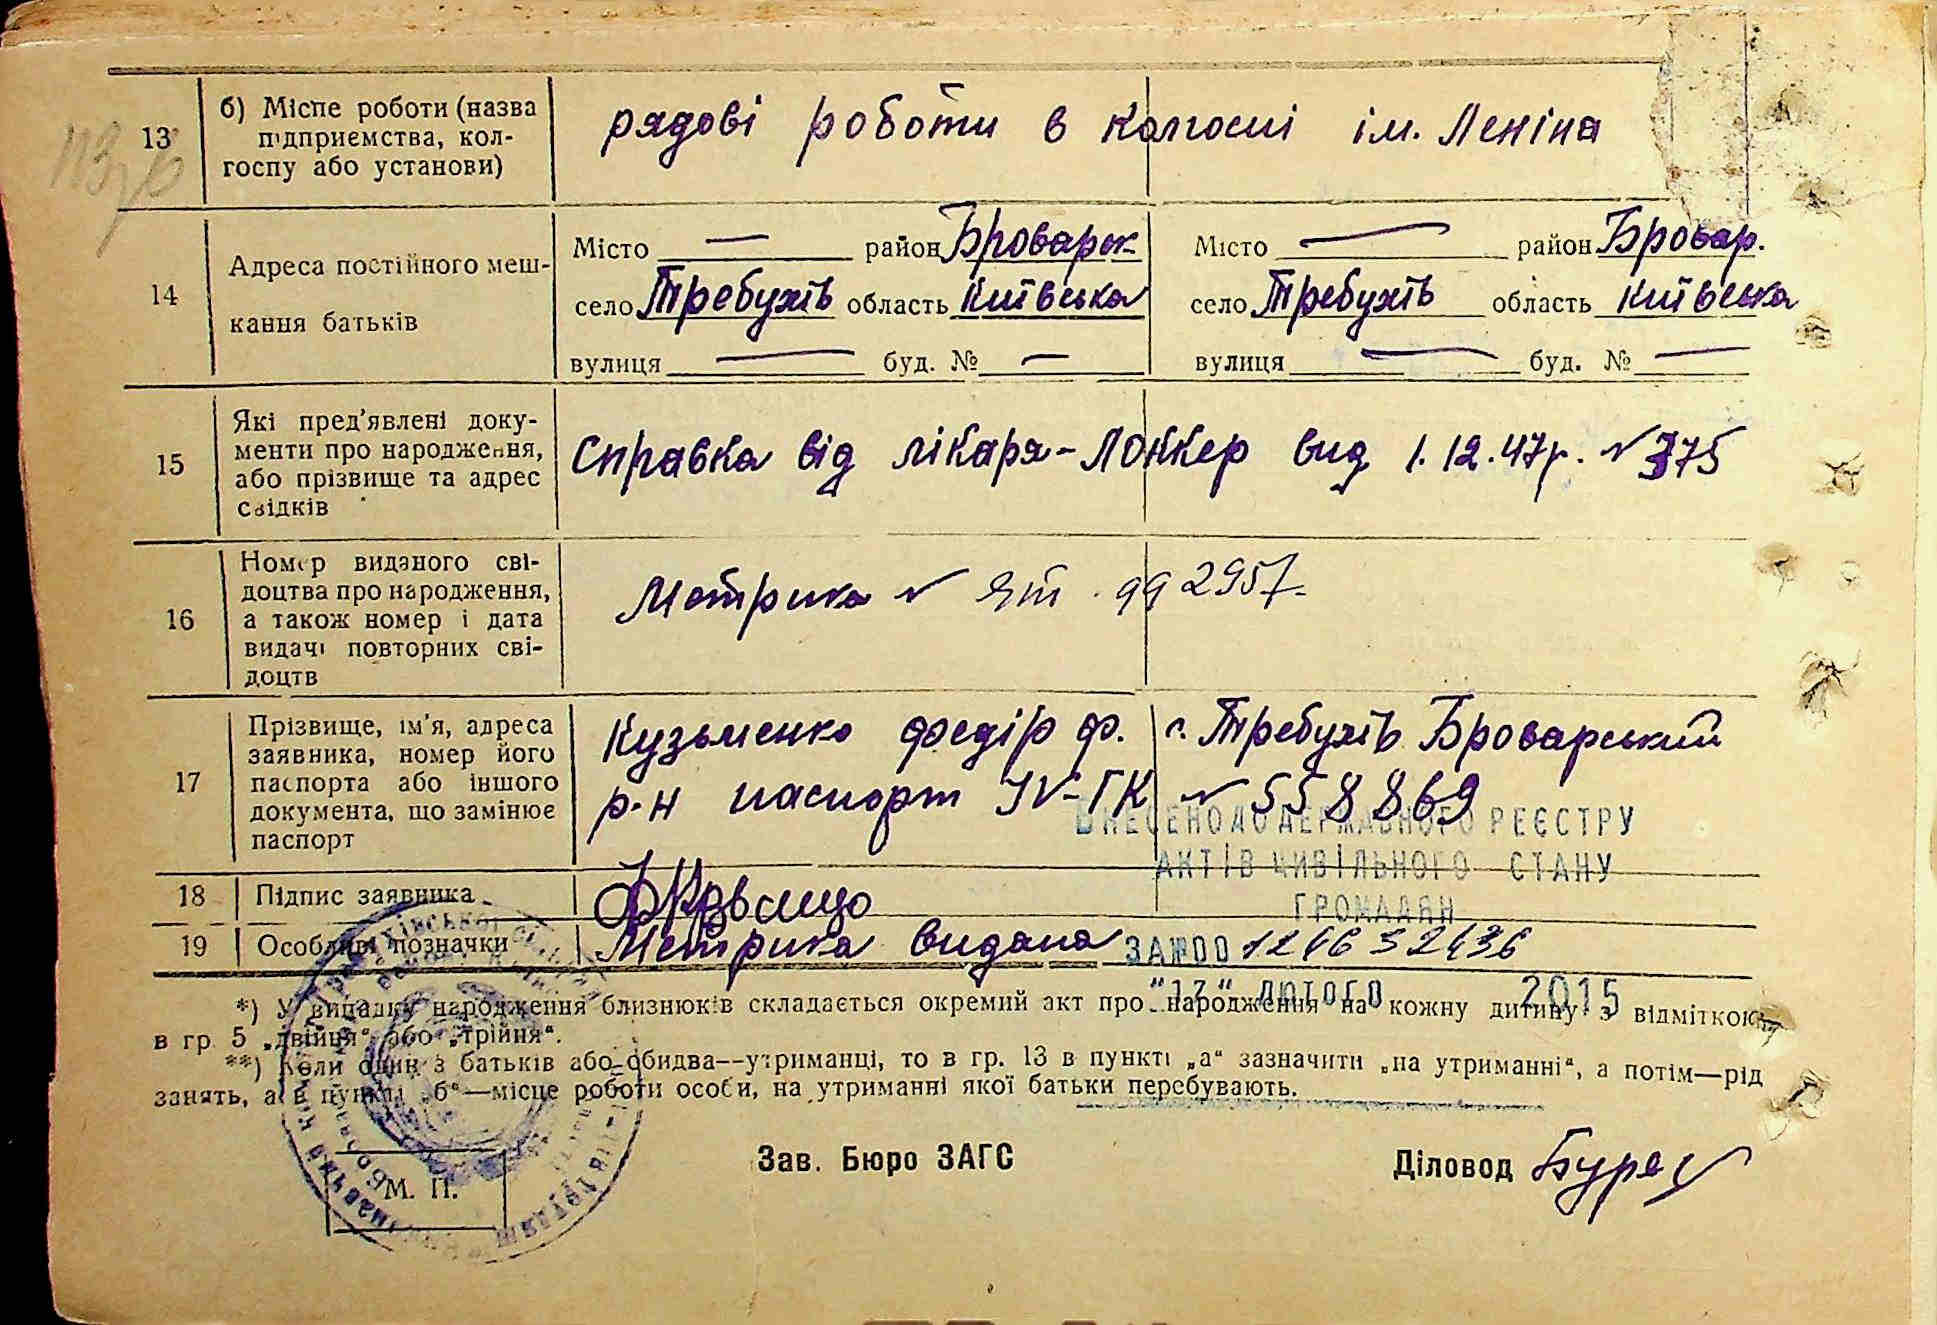 13
б) Місце роботи (назва
підприємства, кол-
госпу або установи)
рядові роботи в колгоспі ім. Леніна
14
Адреса постійного меш-
кання батьків
Місто — район Броварськ
село Требухів область Київська
вулиця — буд. № —
Місто — район Бровар.
село Требухів область Київська
вулиця — буд. № —
15
Які пред'явлені доку-
менти про народження,
або прізвище та адрес
свідків
Справка від лікаря-Лонкер вид 1.12.47р. № 375
16
Номер виданого сві-
доцтва про народження,
а також номер і дата
видачі повторних сві-
доцтв
Метрика № ЯТ. 992957
17
Прізвище, ім'я, адреса
заявника, номер його
паспорта або іншого
документа, що замінює
паспорт
Кузьменко Федір Ф. с. Требухів Броварський
р-н паспорт IV-ГК № 558869
ВНЕСЕНО ДО ДЕРЖАВНОГО РЕЄСТРУ
АКТІВ ЦИВІЛЬНОГО СТАНУ
ГРОМАДЯН
18
Підпис заявника
19
Особливі позначки
Метрика видана
ЗА №00
"17" ЛЮТОГО 2015
*) У випадку народження близнюків складається окремий акт про народження на кожну дитину з відміткою
в гр. 5 „двійня“ або „трійня“.
**) Коли один з батьків або обидва—утриманці, то в гр. 13 в пункті „а“ зазначити „на утриманні“, а потім—рід
занять, а в пункті „б“—місце роботи особи, на утриманні якої батьки перебувають.
Зав. Бюро ЗАГС
Діловод
М. П.